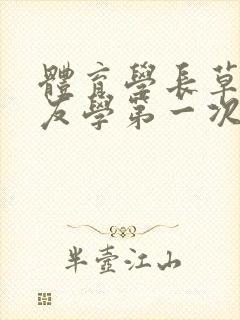 體育學長草
友學第一次
半壺江山